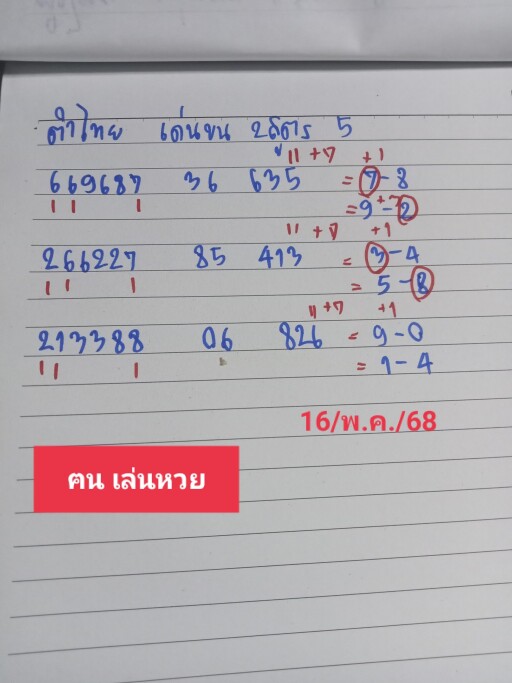 ดำไทย เด่นชน 2สูตร 5
11 +7 +1
669687 36 635 = 7-8
+7
= 9-2
11 +7 +1
266227 85 413 = 3-4
= 5-8
11 +7 +1
213388 06 826 = 9-0
= 1-4
16/พ.ค./68
ฅน เล่นหวย